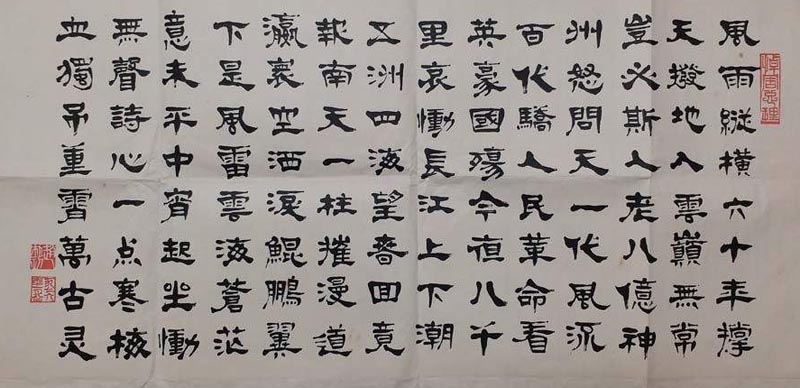 風雨縱横六十年撑
天撥地入雲巔無常
豈必斯人老八億神
州怒問天一代風流
百代驕人民革命看
英豪國殤今夜八千
里哀慟長江上下潮
五洲四海望春回竟
報南天一柱摧漫道
瀛寰空洒淚鯤鵬翼
下是風雷雲海蒼茫
意未平中宵起坐慟
無聲詩心一点寒梅
血獨吊重霄萬古灵